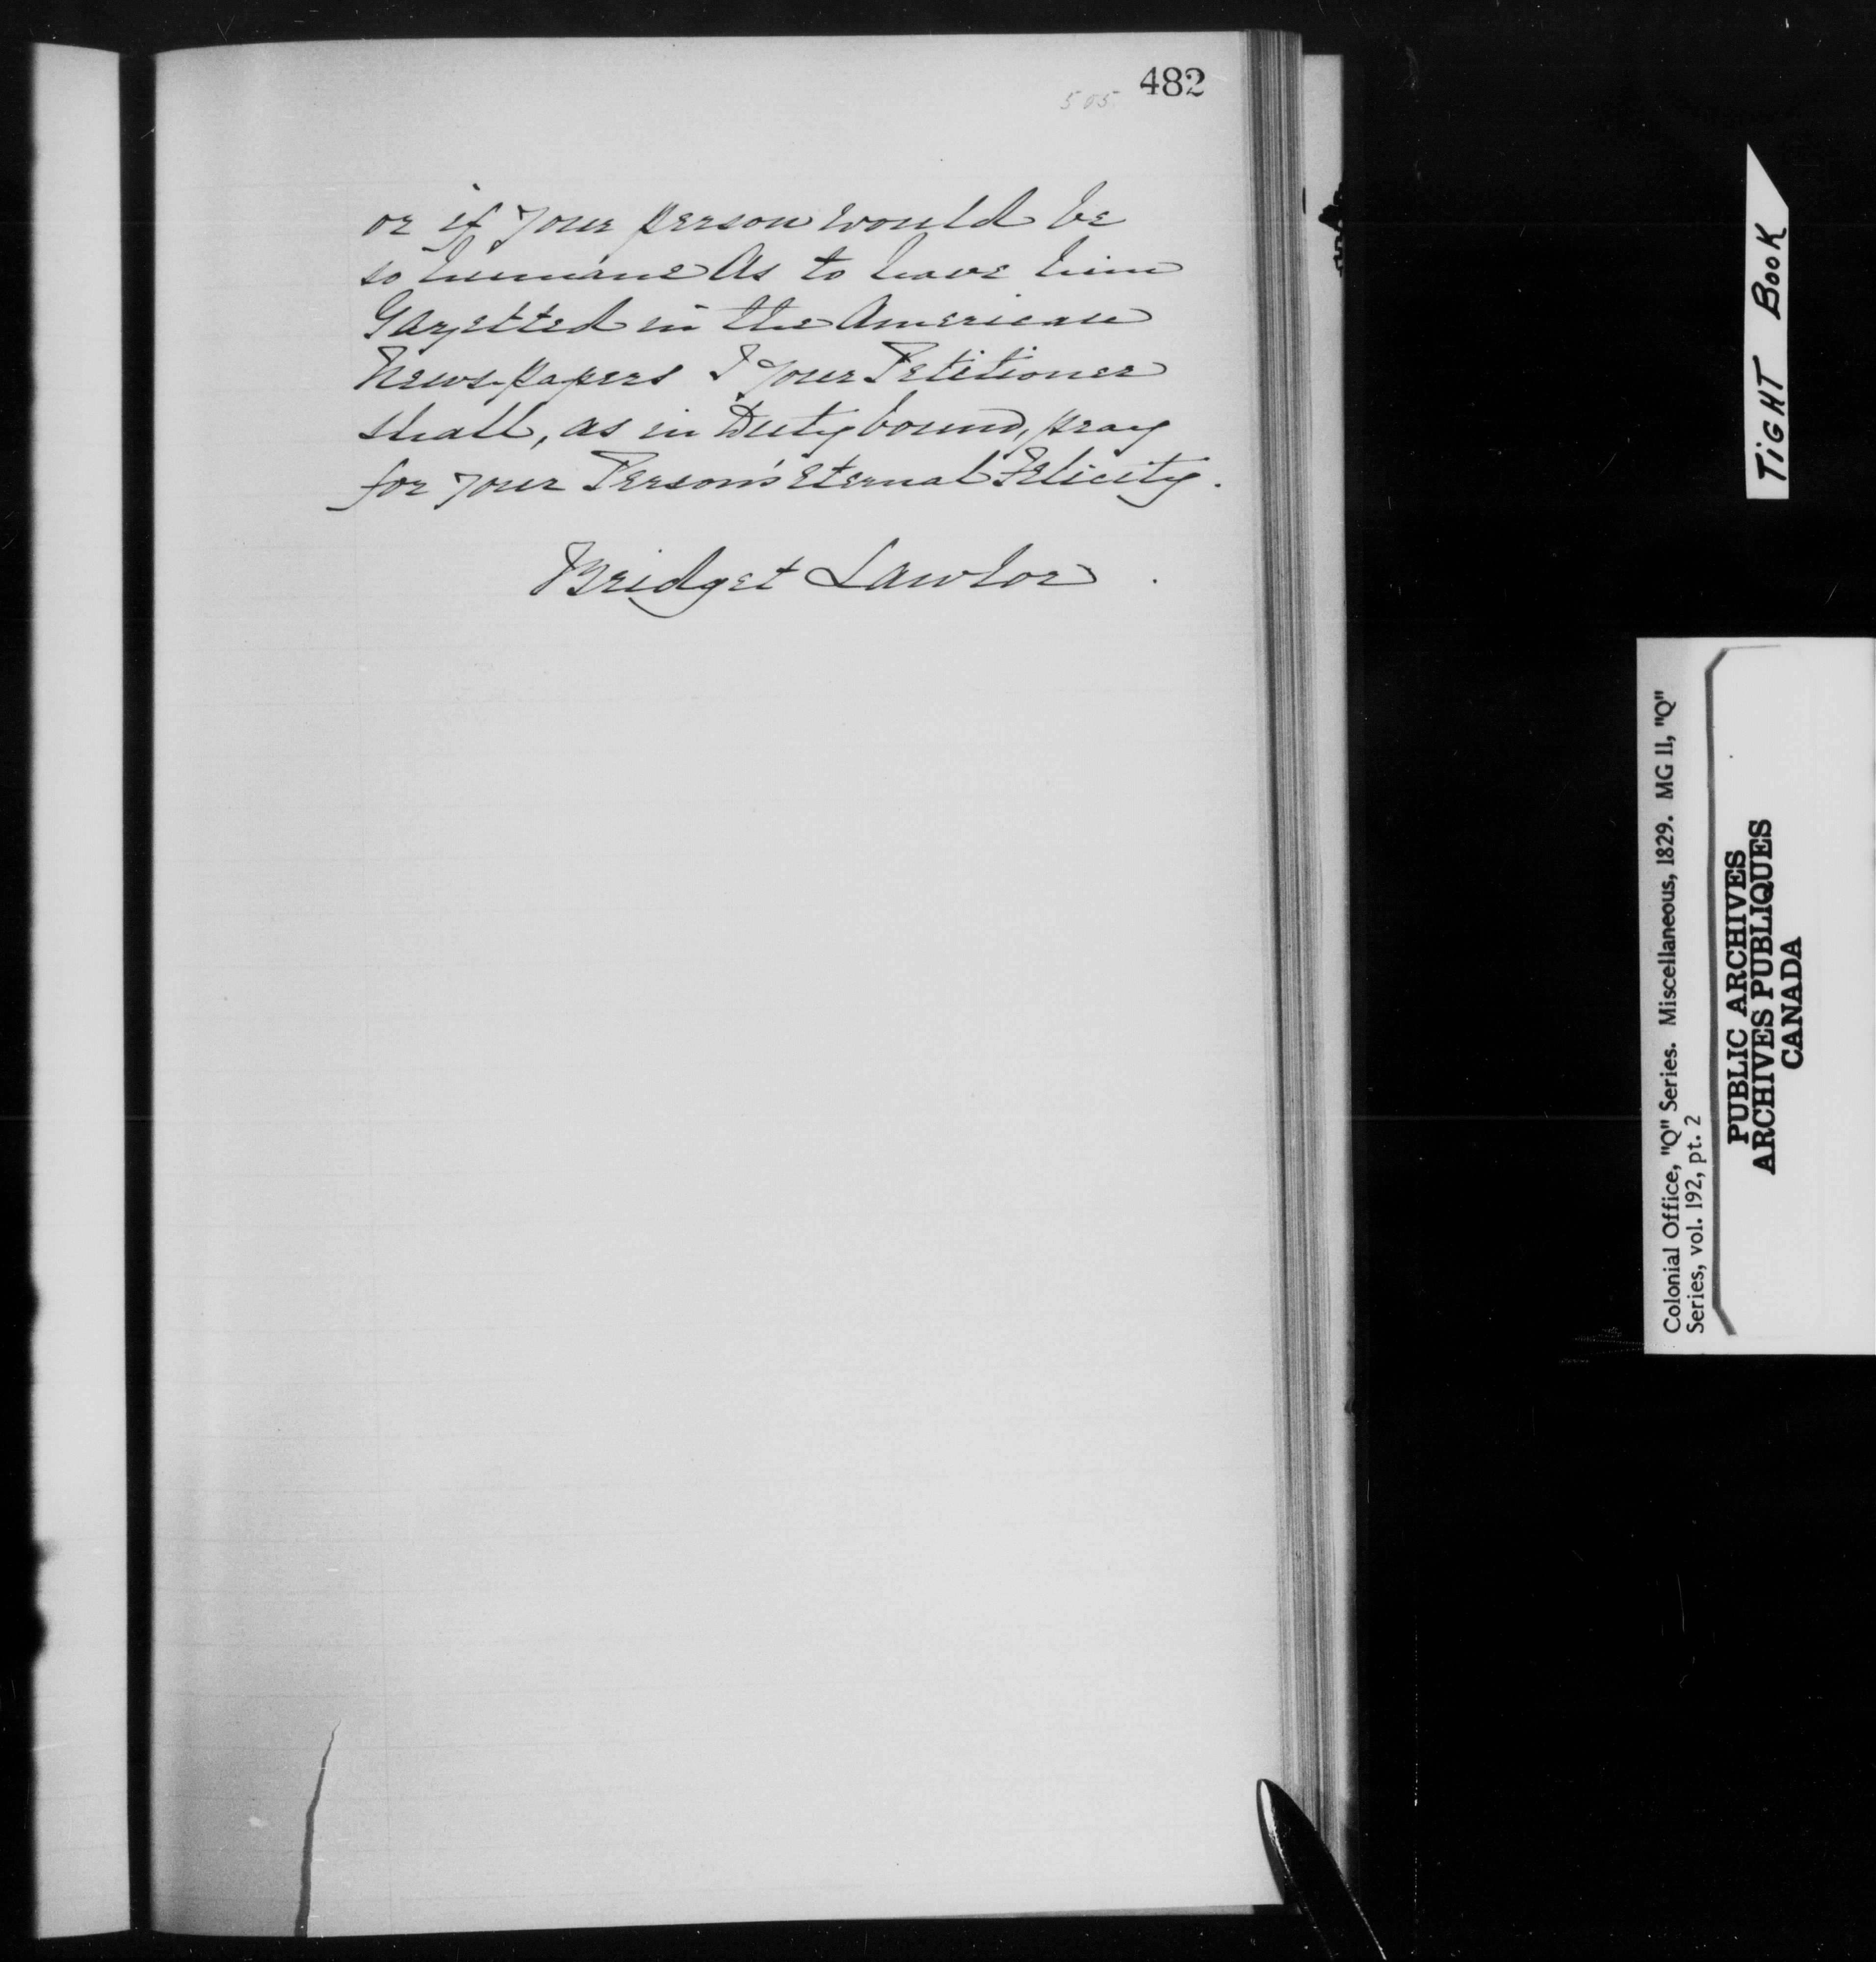 482
505
or if your person would be
so humane As to have him
Gazetted in the American
News-papers I your Petitioner
shall, as in Duty bound, pray
for your Person's Eternal Felicity.
Bridget Lawlor
TIGHT BOOK
Colonial Office, "Q" Series. Miscellaneous, 1829. MG 11, "Q"
Series, vol. 192, pt. 2
PUBLIC ARCHIVES
ARCHIVES PUBLIQUES
CANADA